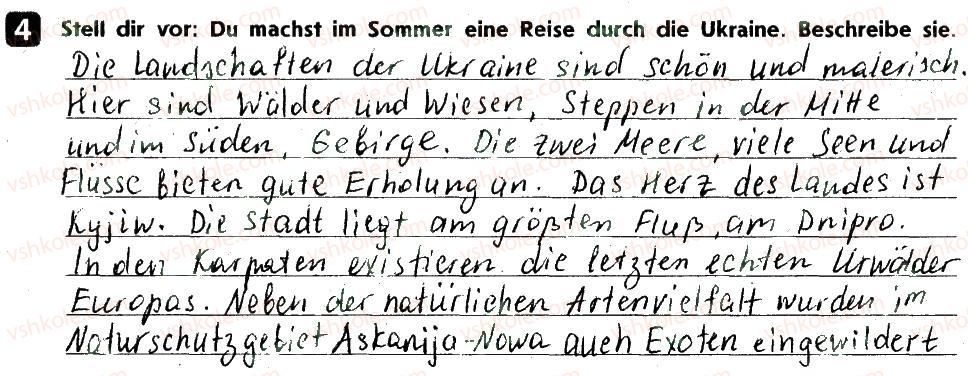 4 Stell dir vor: Du machst im Sommer eine Reise durch die Ukraine. Beschreibe sie.
Die Landschaften der Ukraine sind schön und malerisch.
Hier sind Wälder und Wiesen, Steppen in der Mitte
und im Süden, Gebirge. Die zwei Meere, viele Seen und
Flüsse bieten gute Erholung an. Das Herz des Landes ist
Kyjiw. Die Stadt liegt am größten Fluß, am Dnipro.
In den Karpaten existieren die letzten echten Urwälder
Europas. Neben der natürlichen Artenvielfalt wurden im
Naturschutzgebiet Askanija-Nowa auch Exoten eingewildert